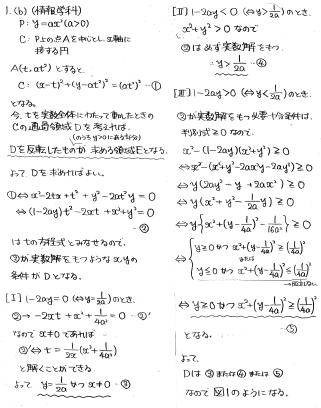 1.(b) (情報学科)
P: y=ax²(a>0)
C: P上の点Aを中心とし、x軸に
接する円
A(t, at²) とすると
C: (x-t)²+(y-at²)²=(at²)² …①
となる。
今、tを実数全体にわたって動かしたときの
Cの通過領域Dを考えれば、
Dを反転したものが求める領域Eとなる。
よって Dを求めればよい。
①⇔ x²-2tx+t²+y²-2at²y=0
⇔ (1-2ay)t²-2xt+x²+y²=0
…②
は tの方程式とみなせるので、
②が実数解をもつような x,yの
条件が Dとなる。
[I] 1-2ay=0 (⇔y=1/2a) のとき、
②→ -2xt+x²+1/4a²=0 …②'
なので x≠0であれば
②'⇔ t=1/2x(x²+1/4a²)
と解くことができる。
よって y=1/2a かつ x≠0 …③
[II] 1-2ay<0 (⇔y>1/2a) のとき、
x²+y²>0 なので
②は必ず実数解をもつ。
∴ y>1/2a …④
[III] 1-2ay>0 (⇔y<1/2a) のとき、
②が実数解をもつ必要十分条件は、
判別式≧0 なので、
x²-(1-2ay)(x²+y²)≧0
⇔ x²-(x²+y²-2ax²y-2ay³)≧0
⇔ y(2ay²-y+2ax²)≧0
⇔ y(x²+y²-1/2a y)≧0
⇔ y{x²+(y-1/4a)²-1/16a²}≧0
⇔ y≧0 かつ x²+(y-1/4a)²≧(1/4a)²
または
y≦0 かつ x²+(y-1/4a)²≦(1/4a)²
⇔ y≧0 かつ x²+(y-1/4a)²≧(1/4a)²
…⑤
となる。
よって、
Dは ③または④または⑤
なので 図1のようになる。